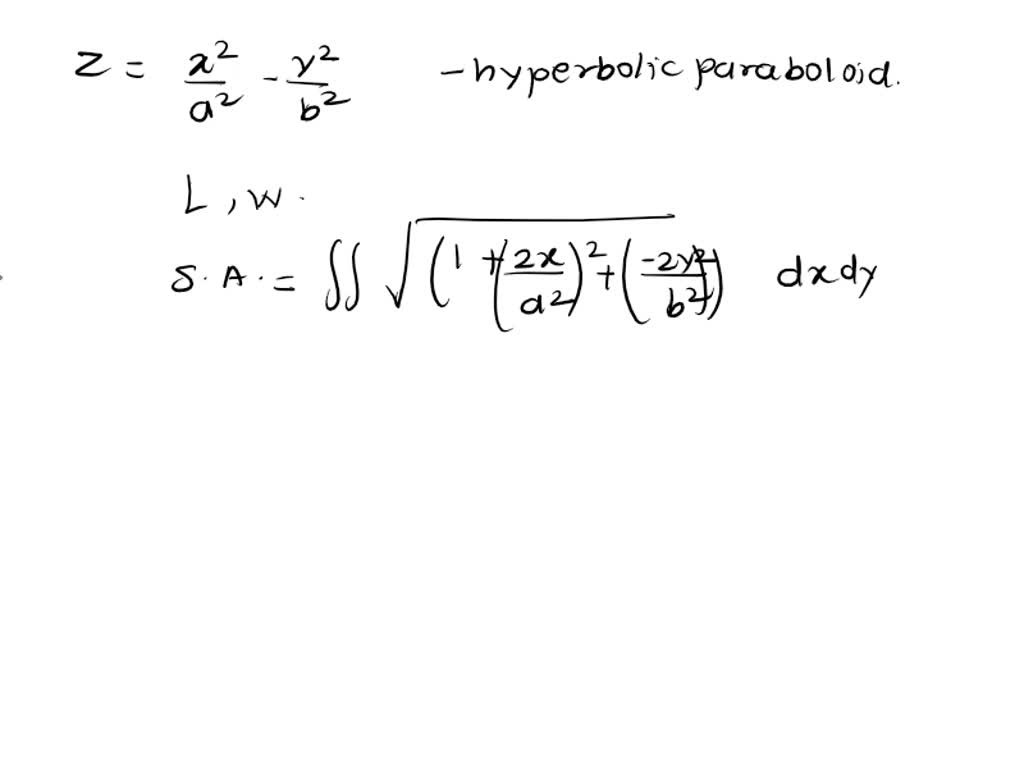 z = x²/a² - y²/b² - hyperbolic paraboloid.
L, W.
S.A. = ∬ √(1 + (2x/a²)² + (-2y/b²)²) dxdy